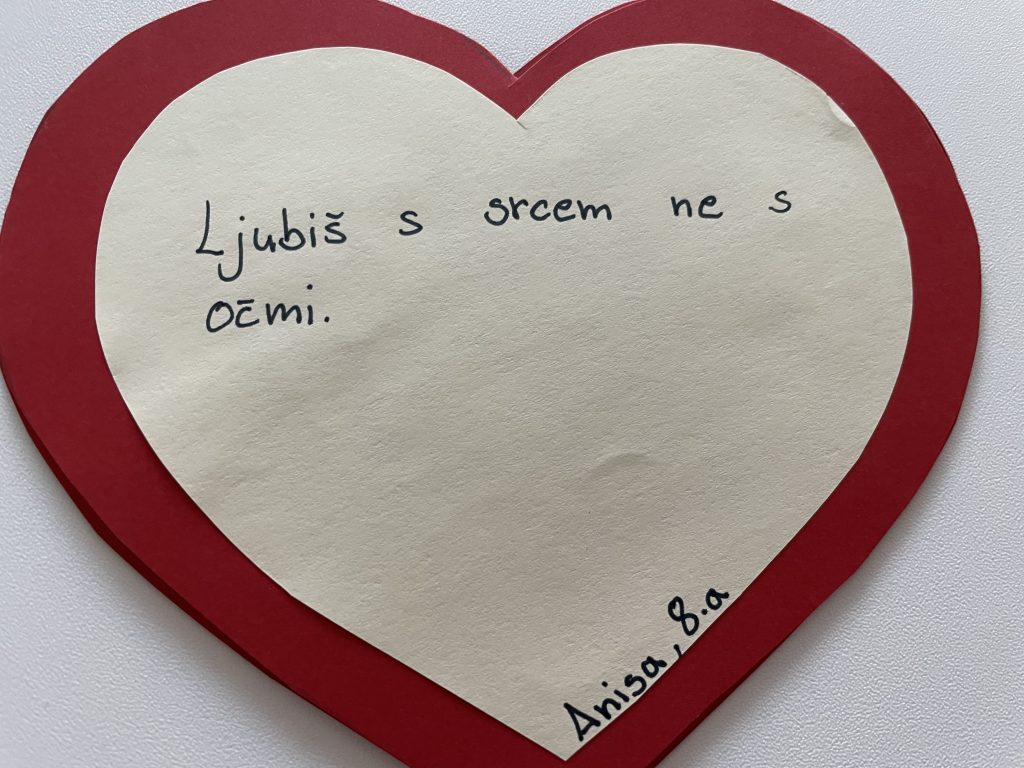 Ljubiš s srcem ne s
očmi.
Anisa, 8.a